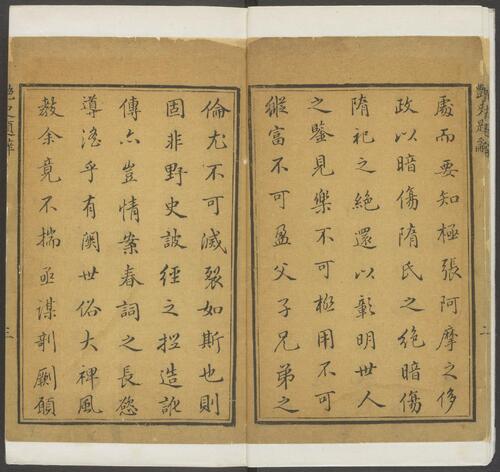 艷史題辭
處而要知極張阿摩之侈
政以暗傷隋氏之絶暗傷
隋祀之絶還以彰明世人
之鑒見樂不可極用不可
縱富不可盈父子兄弟之
二
倫尤不可滅裂如斯也則
固非野史詖經之揑造訛
傳亦豈情案春詞之長慾
導淫乎有關世俗大裨風
教余竟不揣亟謀剞劂願
艷史題辭
三